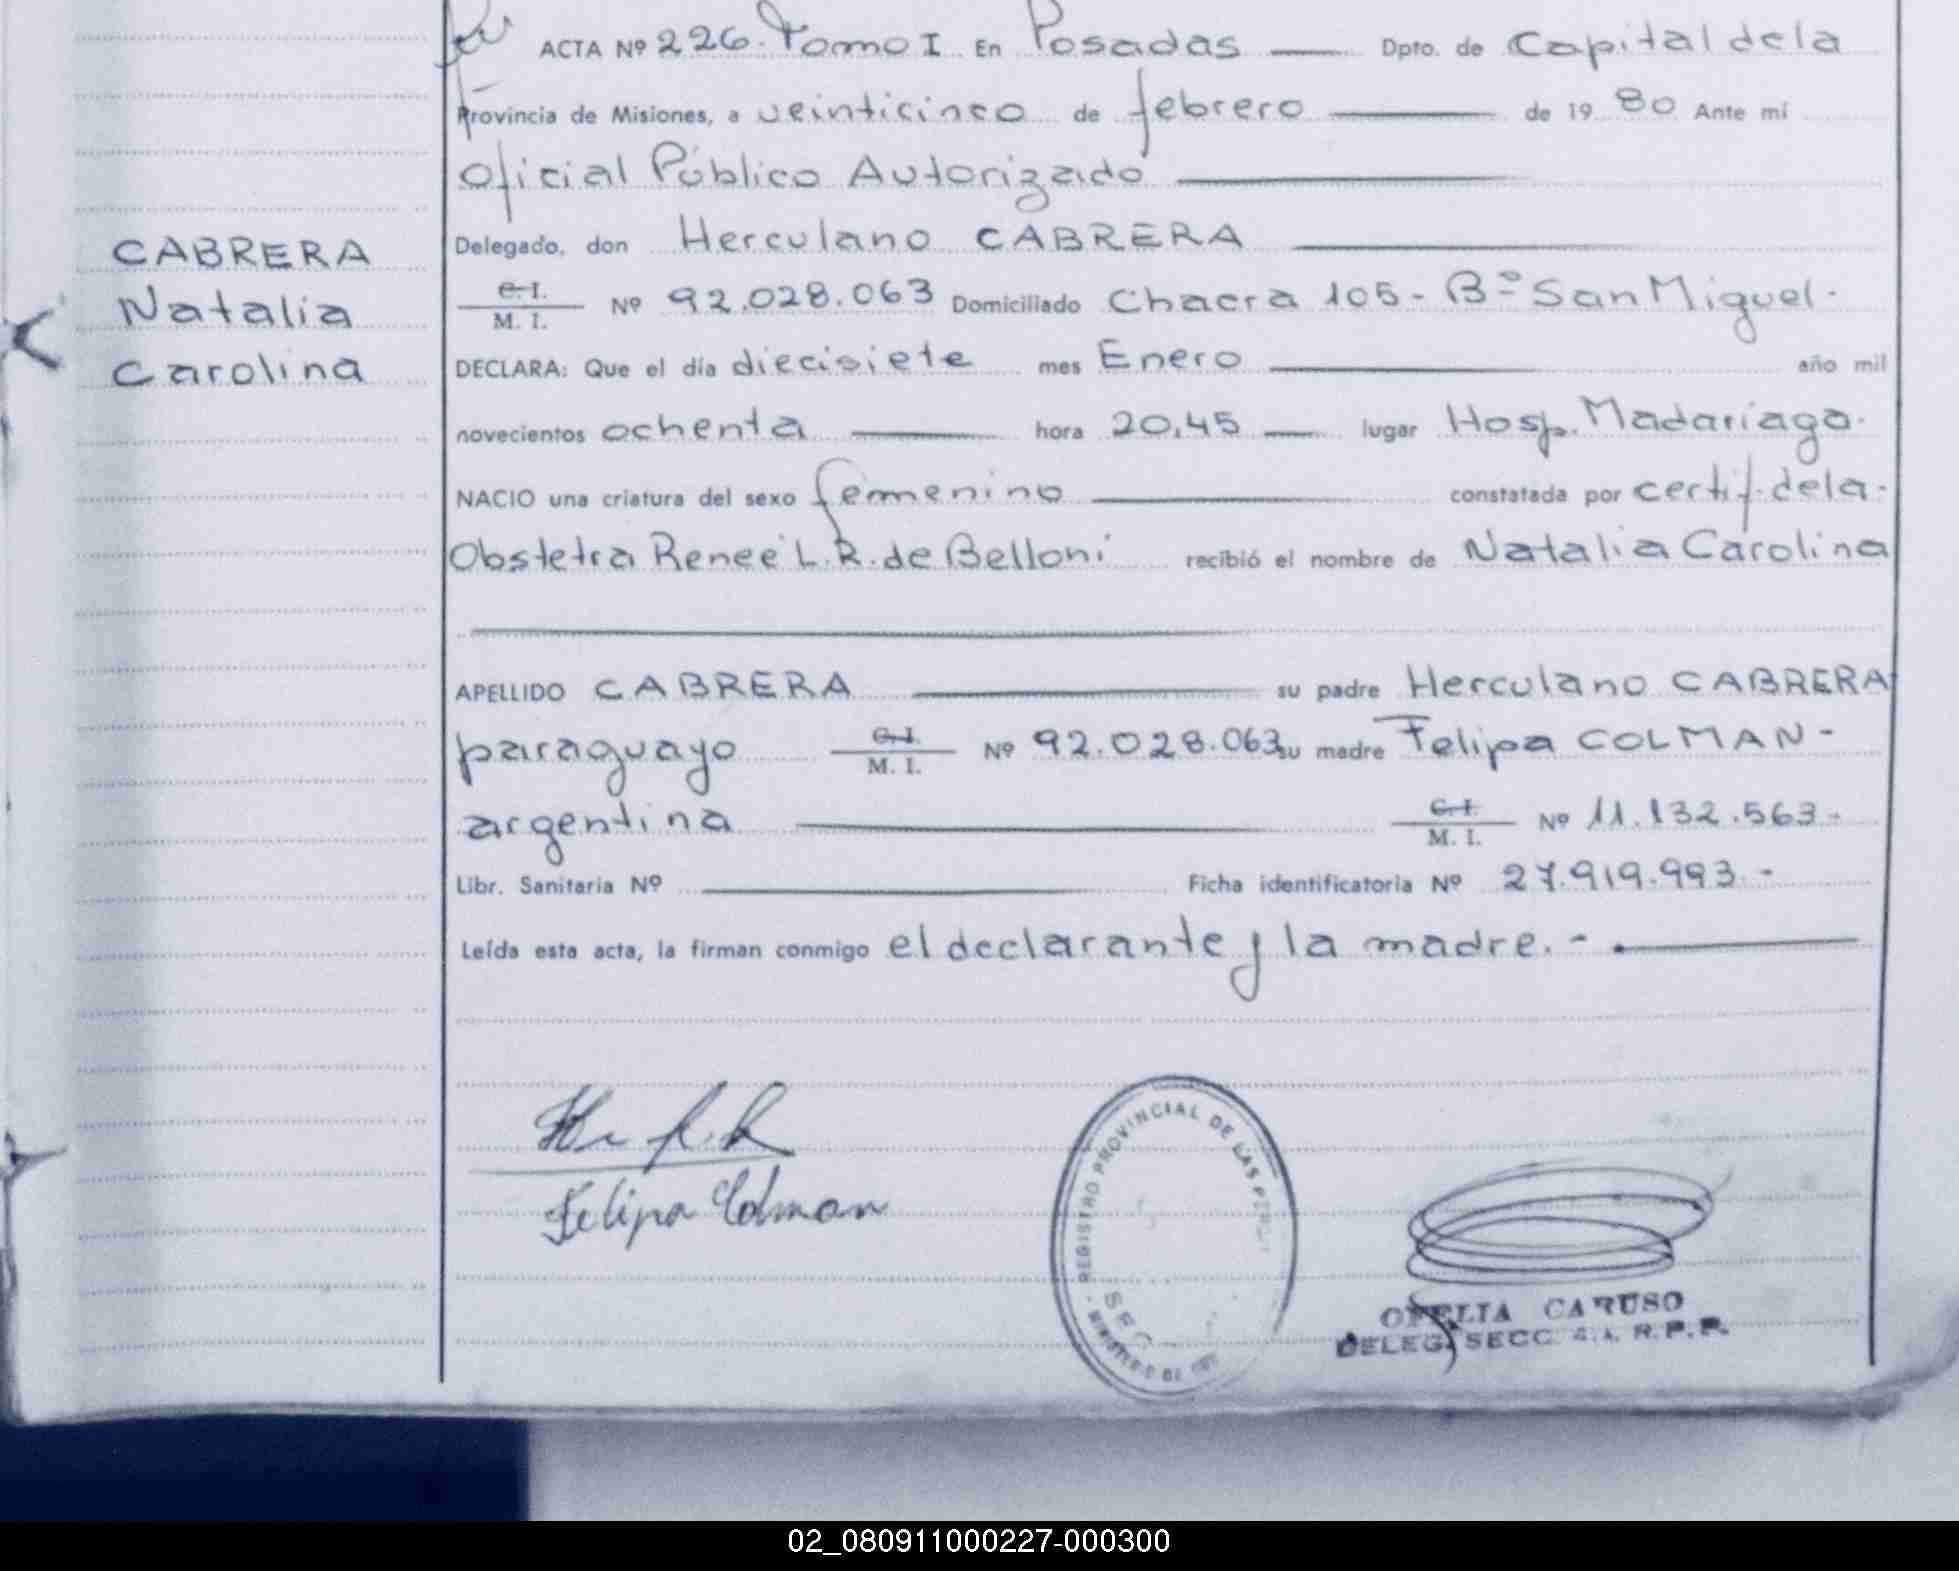 ACTA Nº 226. Tomo I. En Posadas Dpto. de Capital de la
Provincia de Misiones, a veinticinco de febrero de 19 80 Ante mí
Oficial Público Autorizado
Delegado, don Herculano CABRERA
CABRERA
C. I.
M. I. Nº 92.028.063 Domiciliado Chacra 105 - Bº San Miguel.
Natalia
DECLARA: Que el día diecisiete mes Enero año mil
Carolina
novecientos ochenta hora 20,45 lugar Hosp. Madariaga.
NACIO una criatura del sexo femenino constatada por certif. de la.
Obstetra Renee L. R. de Belloni recibió el nombre de Natalia Carolina
APELLIDO CABRERA su padre Herculano CABRERA
paraguayo C. I. M. I. Nº 92.028.063 su madre Felipa COLMAN -
argentina C. I. M. I. Nº 11.132.563.-
Libr. Sanitaria Nº Ficha identificatoria Nº 27.919.993.-
Leída esta acta, la firman conmigo el declarante y la madre.-
Felipa Colman
REGISTRO PROVINCIAL DE LAS
SEC
OFELIA CARUSO
DELEG. SECC. 4.A. R.P.P.
02_080911000227-000300